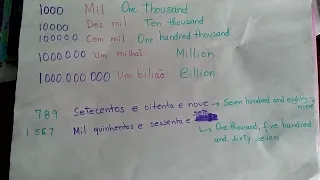 1000 Mil One Thousand
10000 Dez mil Ten thousand
100000 Cem mil One hundred thousand
1000000 Um milhão Million
1.000.000 000 Um bilião Billion
789 Setecentos e oitenta e nove → Seven hundred and eighty nine
1567 Mil quinhentos e sessenta e sete
→ One thousand, five hundred
and sixty seven